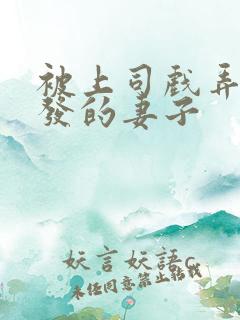 被上司戲弄
發的妻子
妖言妖語c
未經同意禁止轉載